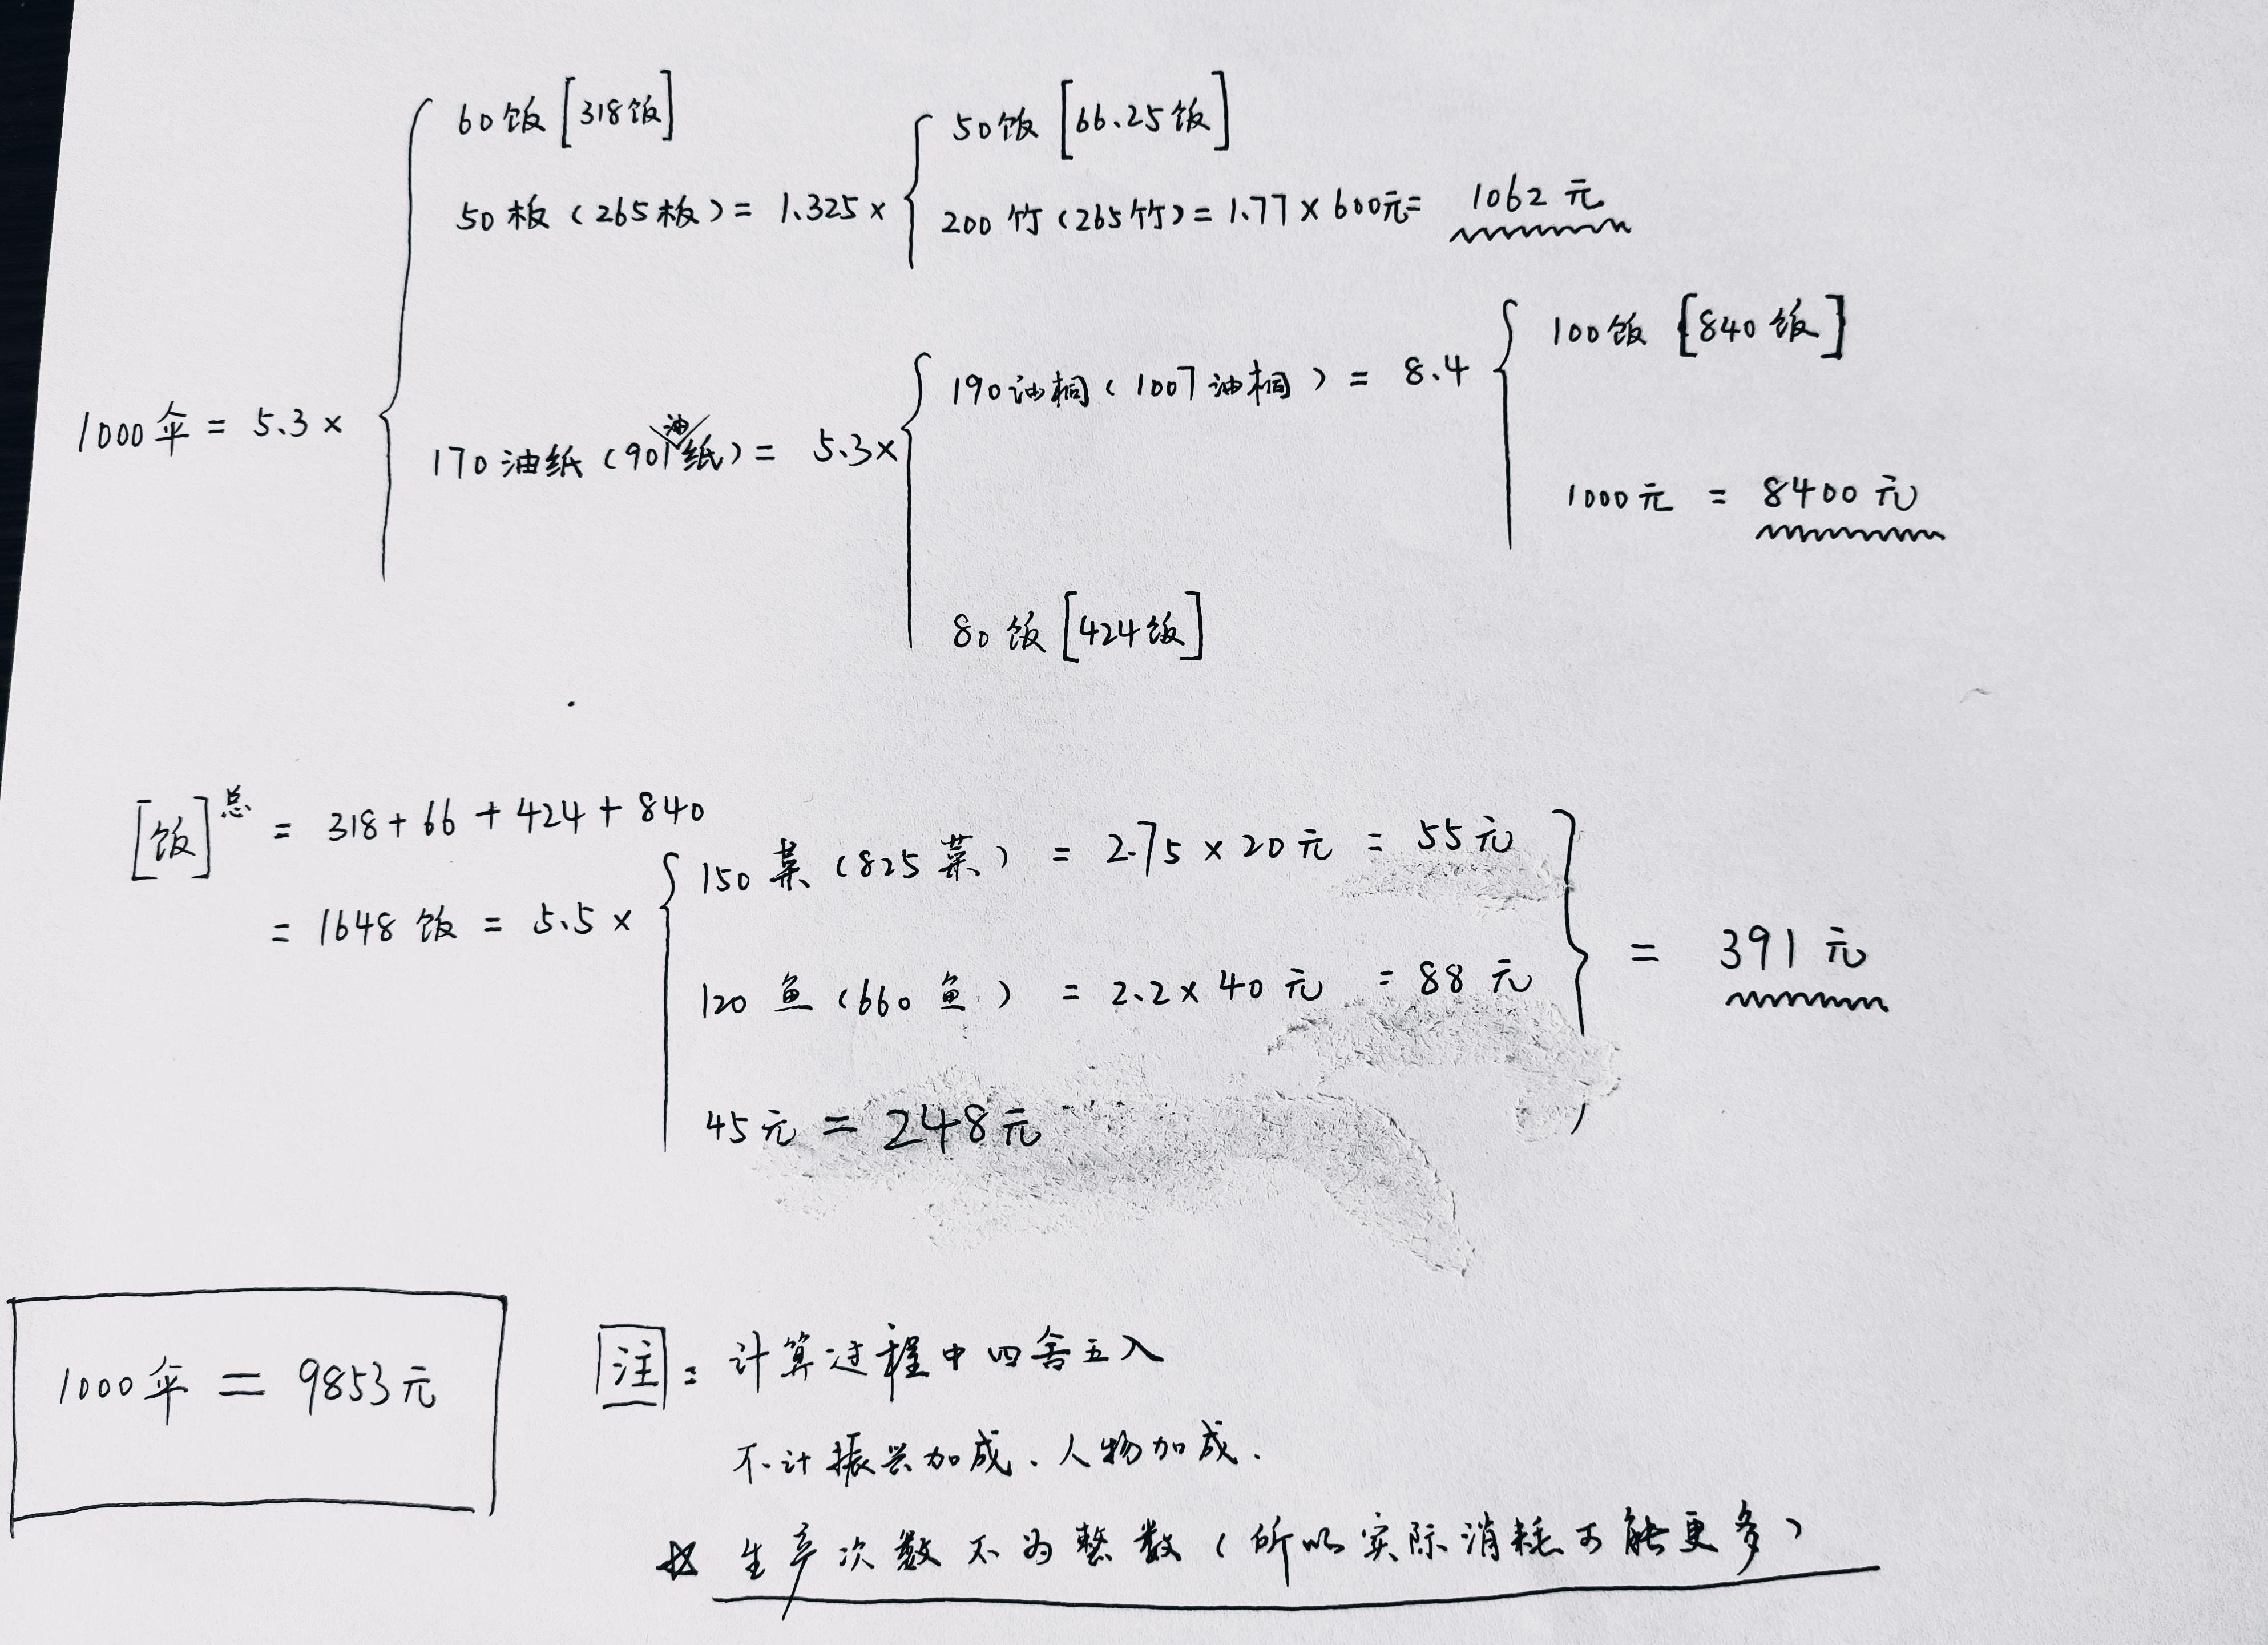 60饭 [318饭]
50饭 [66.25饭]
50板(265板)= 1.325×
200竹(265竹)= 1.77×600元= 1062元
100饭 [840饭]
190油桐(1007油桐)= 8.4
1000伞 = 5.3×
170油纸(901油纸)= 5.3×
1000元 = 8400元
80饭 [424饭]
[饭]总 = 318+66+424+840
150菜(825菜) = 2.75×20元 = 55元
= 1648饭 = 5.5×
= 391元
120鱼(660鱼) = 2.2×40元 = 88元
45元 = 248元
1000伞 = 9853元
注: 计算过程中四舍五入
不计振兴加成、人物加成.
☆ 生产次数不为整数(所以实际消耗可能更多)